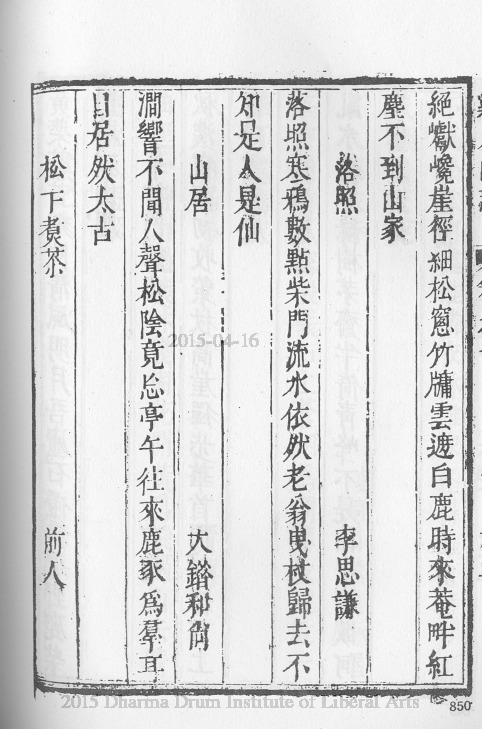 絕巘巉崖徑細松窻竹牖雲遮白鹿時來菴畔紅
塵不到山家
落照 李思謙
落照寒鴉數點柴門流水依然老翁曳杖歸去不
知是人是仙
山居 大錯和尚
澗響不聞人聲松陰竟忘亭午往來鹿豕爲羣耳
目居然太古
松下煑茶 前人
2015-04-16
850
2015 Dharma Drum Institute of Liberal Arts